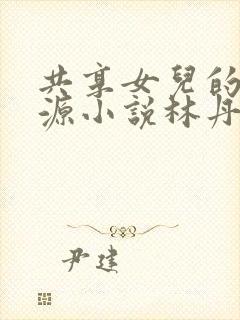 共享女兒的
源小說林丹
尹建